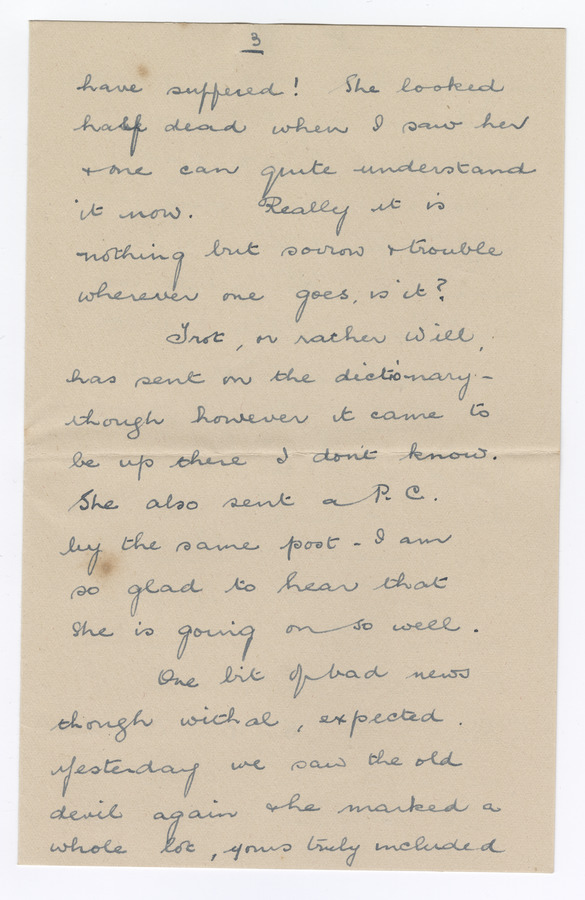 3
have suffered! She looked
half dead when I saw her
& one can quite understand
it now. Really it is
nothing but sorrow & trouble
wherever one goes, is it?
Trot, or rather Will,
has sent on the dictionary -
though however it came to
be up there I don't know.
She also sent a P.C.
by the same post - I am
so glad to hear that
she is going on so well.
One bit of bad news
though withal, expected.
Yesterday we saw the old
devil again & he marked a
whole lot, yours truly included